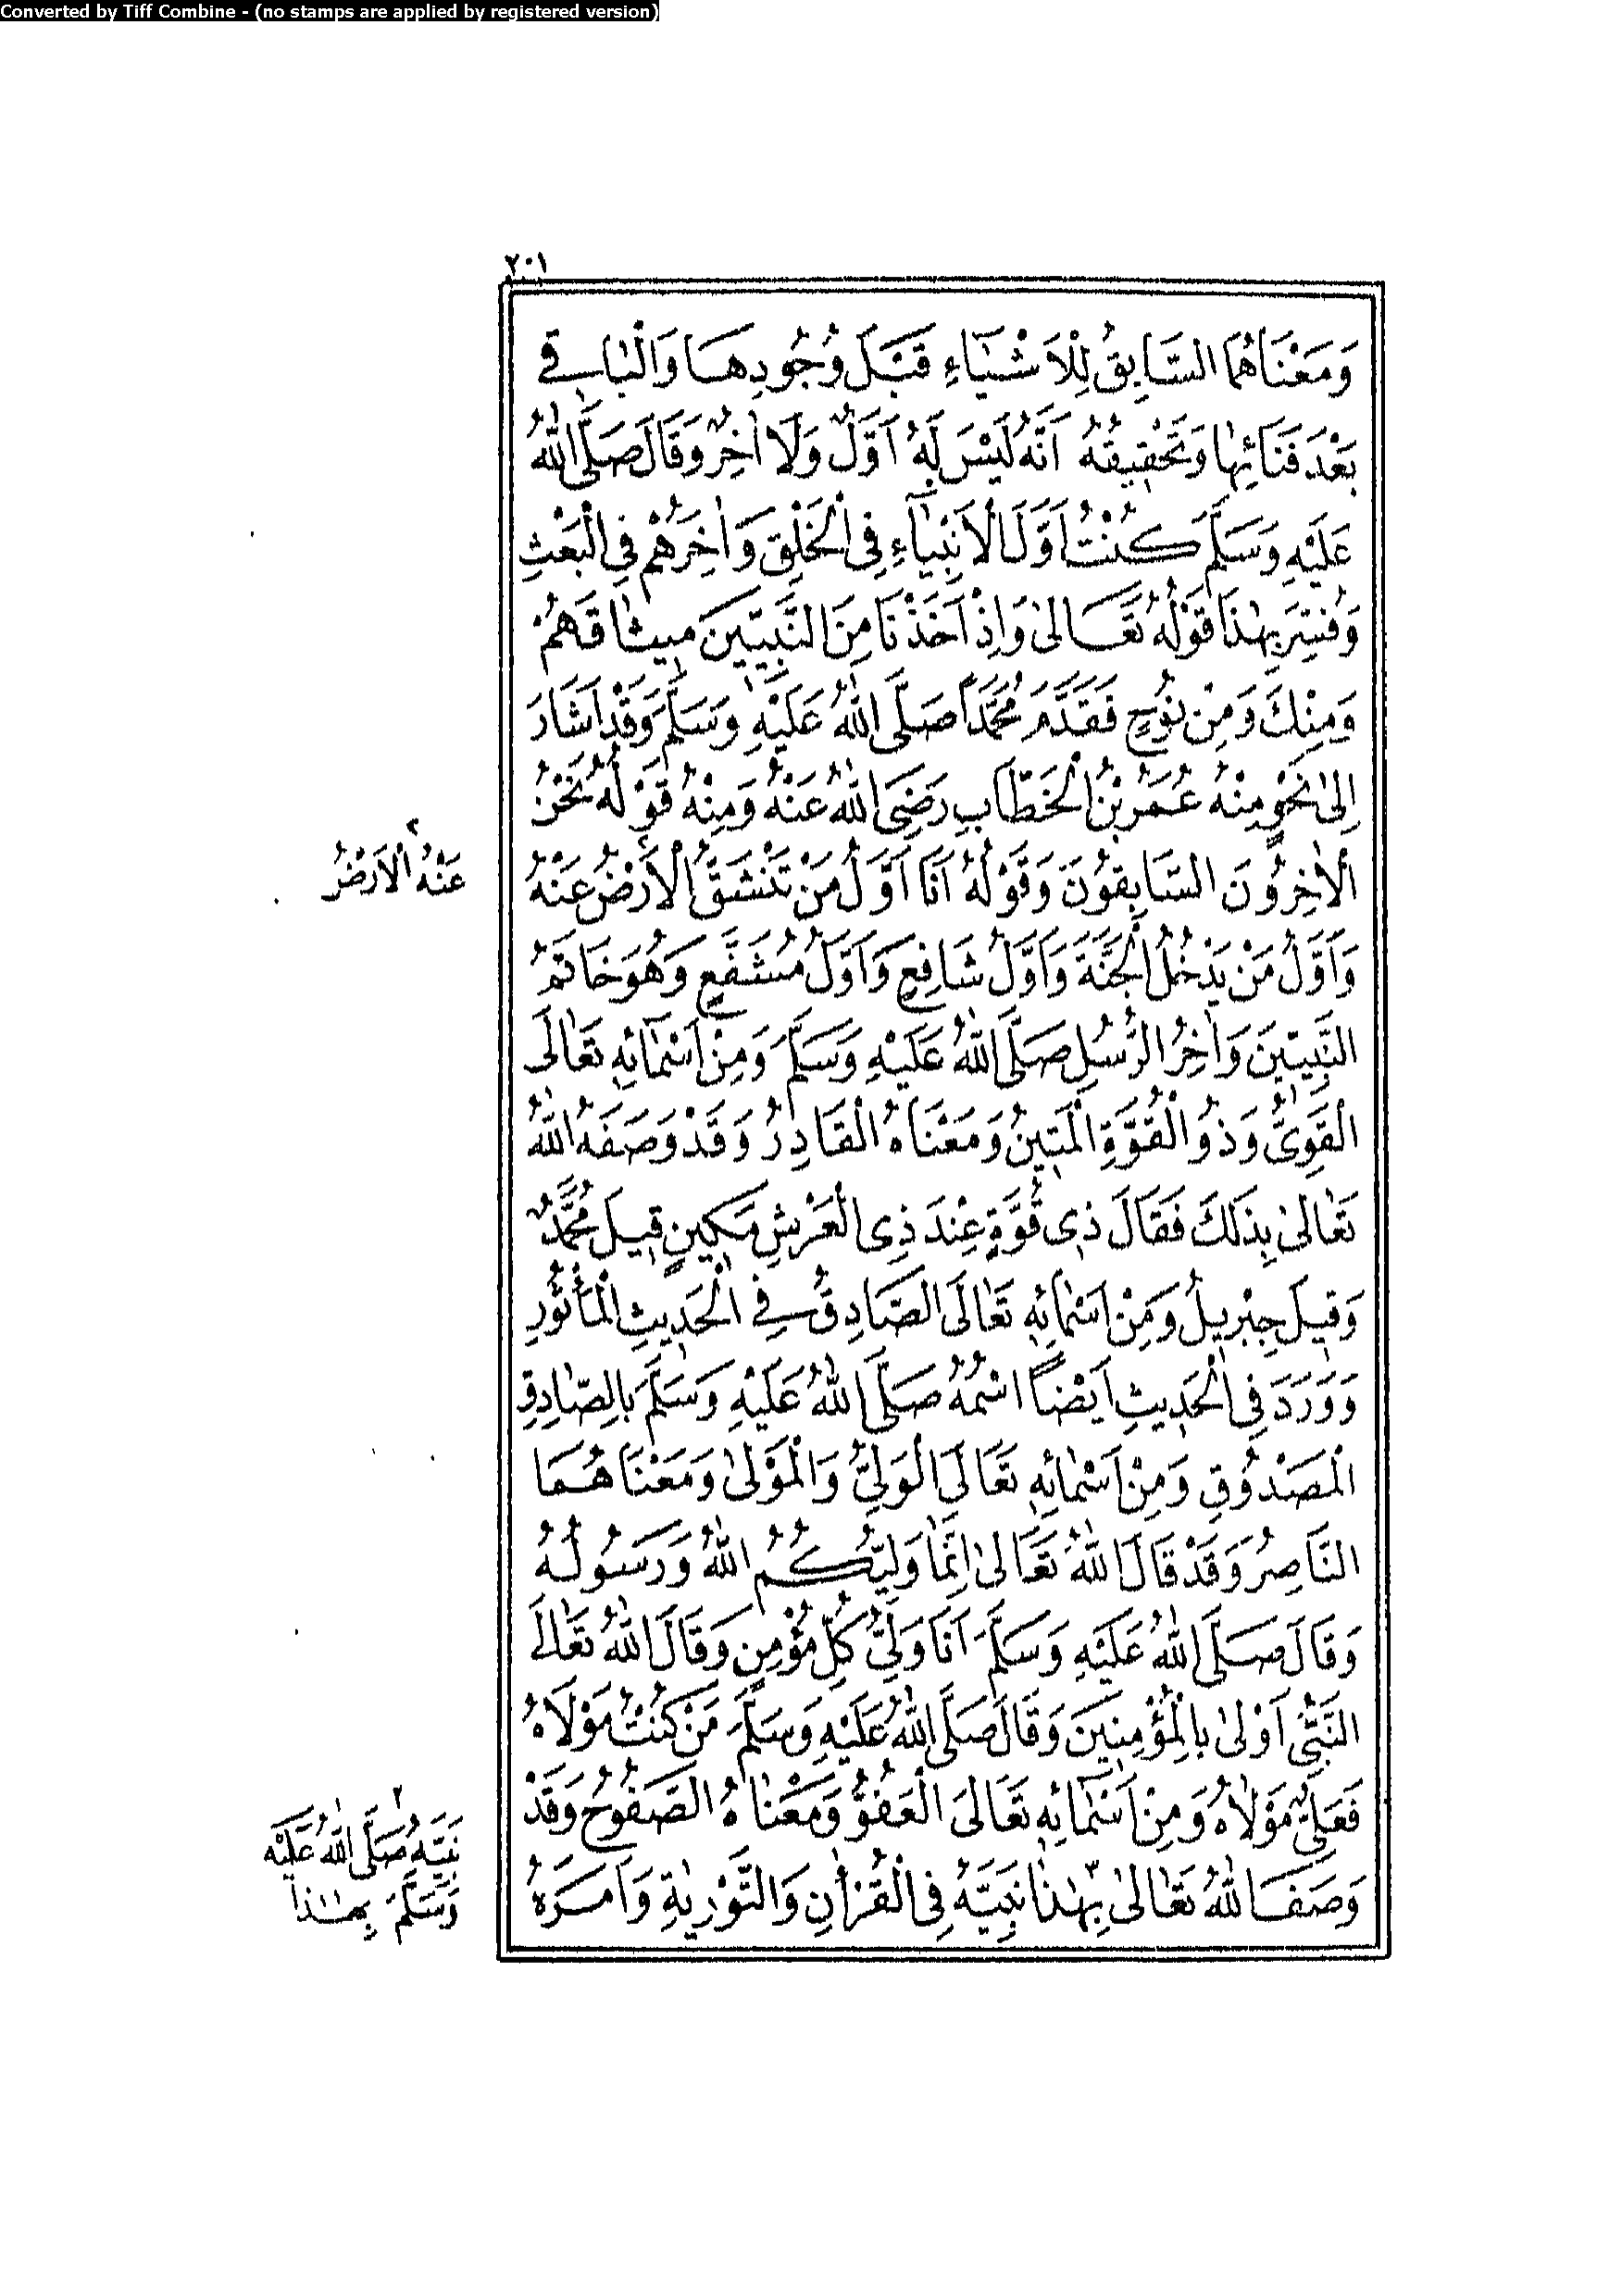 Converted by Tiff Combine - (no stamps are applied by registered version)
٢٠١
وَمَعْنَاهُمَا السَّابِقُ لِلْاَشْيَاءِ قَبْلَ وُجُودِهَا وَالْبَاقِي
بَعْدَ فَنَائِهَا وَتَحْقِيقُهُ اَنَّهُ لَيْسَ لَهُ اَوَّلٌ وَلَا اٰخِرٌ وَقَالَ صَلَّى اللّٰهُ
عَلَيْهِ وَسَلَّمَ كُنْتُ اَوَّلَ الْاَنْبِيَآءِ فِى الْخَلْقِ وَاٰخِرَهُمْ فِى الْبَعْثِ
وَفُسِّرَ بِهٰذَا قَوْلُهُ تَعَالىٰ وَاِذْ اَخَذْنَا مِنَ النَّبِيّٖنَ مِيثَاقَهُمْ
وَمِنْكَ وَمِنْ نُوحٍ فَقَدَّمَ مُحَمَّدًا صَلَّى اللّٰهُ عَلَيْهِ وَسَلَّمَ وَقَدْ اَشَارَ
اِلىٰ نَحْوٍ مِنْهُ عُمَرُ بْنُ الْخَطَّابِ رَضِىَ اللّٰهُ عَنْهُ وَمِنْهُ قَوْلُهُ نَحْنُ
الْاٰخِرُونَ السَّابِقُونَ وَقَوْلُهُ اَنَا اَوَّلُ مَنْ تَنْشَقُّ الْاَرْضُ عَنْهُ
٢
عَنْهُ الْاَرْضُ
وَاَوَّلُ مَنْ يَدْخُلُ الْجَنَّةَ وَاَوَّلُ شَافِعٍ وَاَوَّلُ مُشَفَّعٍ وَهُوَ خَاتَمُ
النَّبِيّٖنَ وَاٰخِرُ الرُّسُلِ صَلَّى اللّٰهُ عَلَيْهِ وَسَلَّمَ وَمِنْ اَسْمَآئِهِ تَعَالَى
الْقَوِىُّ وَذُو الْقُوَّةِ الْمَتِينُ وَمَعْنَاهُ الْقَادِرُ وَقَدْ وَصَفَهُ اللّٰهُ
تَعَالىٰ بِذَلِكَ فَقَالَ ذِى قُوَّةٍ عِنْدَ ذِى الْعَرْشِ مَكِينٍ قِيلَ مُحَمَّدٌ
وَقِيلَ جِبْرِيلُ وَمِنْ اَسْمَائِهِ تَعَالَى الصَّادِقُ فِى الْحَدِيثِ الْمَأْثُورِ
وَوَرَدَ فِى الْحَدِيثِ اَيْضًا اسْمُهُ صَلَّى اللّٰهُ عَلَيْهِ وَسَلَّمَ بِالصَّادِقِ
الْمَصْدُوقِ وَمِنْ اَسْمَائِهِ تَعَالَى الْوَلِىُّ وَالْمَوْلىٰ وَمَعْنَاهُمَا
النَّاصِرُ وَقَدْ قَالَ اللّٰهُ تَعَالىٰ اِنَّمَا وَلِيُّكُمُ اللّٰهُ وَرَسُولُهُ
وَقَالَ صَلَّى اللّٰهُ عَلَيْهِ وَسَلَّمَ اَنَا وَلِىُّ كُلِّ مُؤْمِنٍ وَقَالَ اللّٰهُ تَعَالَى
النَّبِىُّ اَوْلىٰ بِالْمُؤْمِنِينَ وَقَالَ صَلَّى اللّٰهُ عَلَيْهِ وَسَلَّمَ مَنْ كُنْتُ مَوْلَاهُ
فَعَلِىٌّ مَوْلَاهُ وَمِنْ اَسْمَآئِهِ تَعَالَى الْعَفُوُّ وَمَعْنَاهُ الصَّفُوحُ وَقَدْ
وَصَفَ اللّٰهُ تَعَالىٰ بِهٰذَا نَبِيَّهُ فِى الْقُرْاٰنِ وَالتَّوْرٰيةِ وَاَمَرَهُ
٢
نَبِيَّهُ صَلَّى اللّٰهُ عَلَيْهِ
وَسَلَّمَ بِهٰذَا